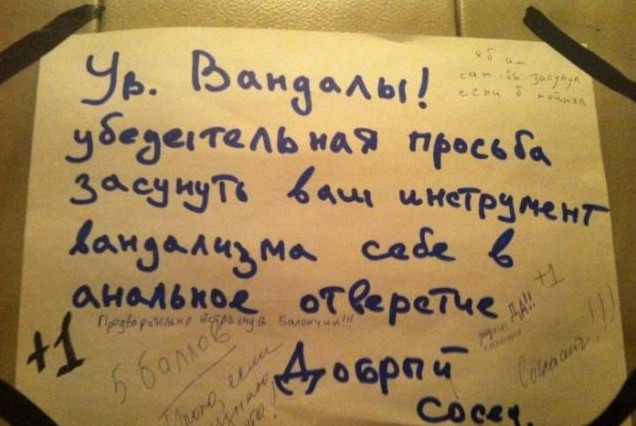 Ув. Вандалы!
убедительная просьба
засунуть ваш инструмент
вандализма себе в
анальное отверстие
Добрый
сосед.
сам бы засунул
если б поймал
Предварительно встряхнув балончик!!!
+1
5 баллов
ДА!!
+1
Согласен!!!